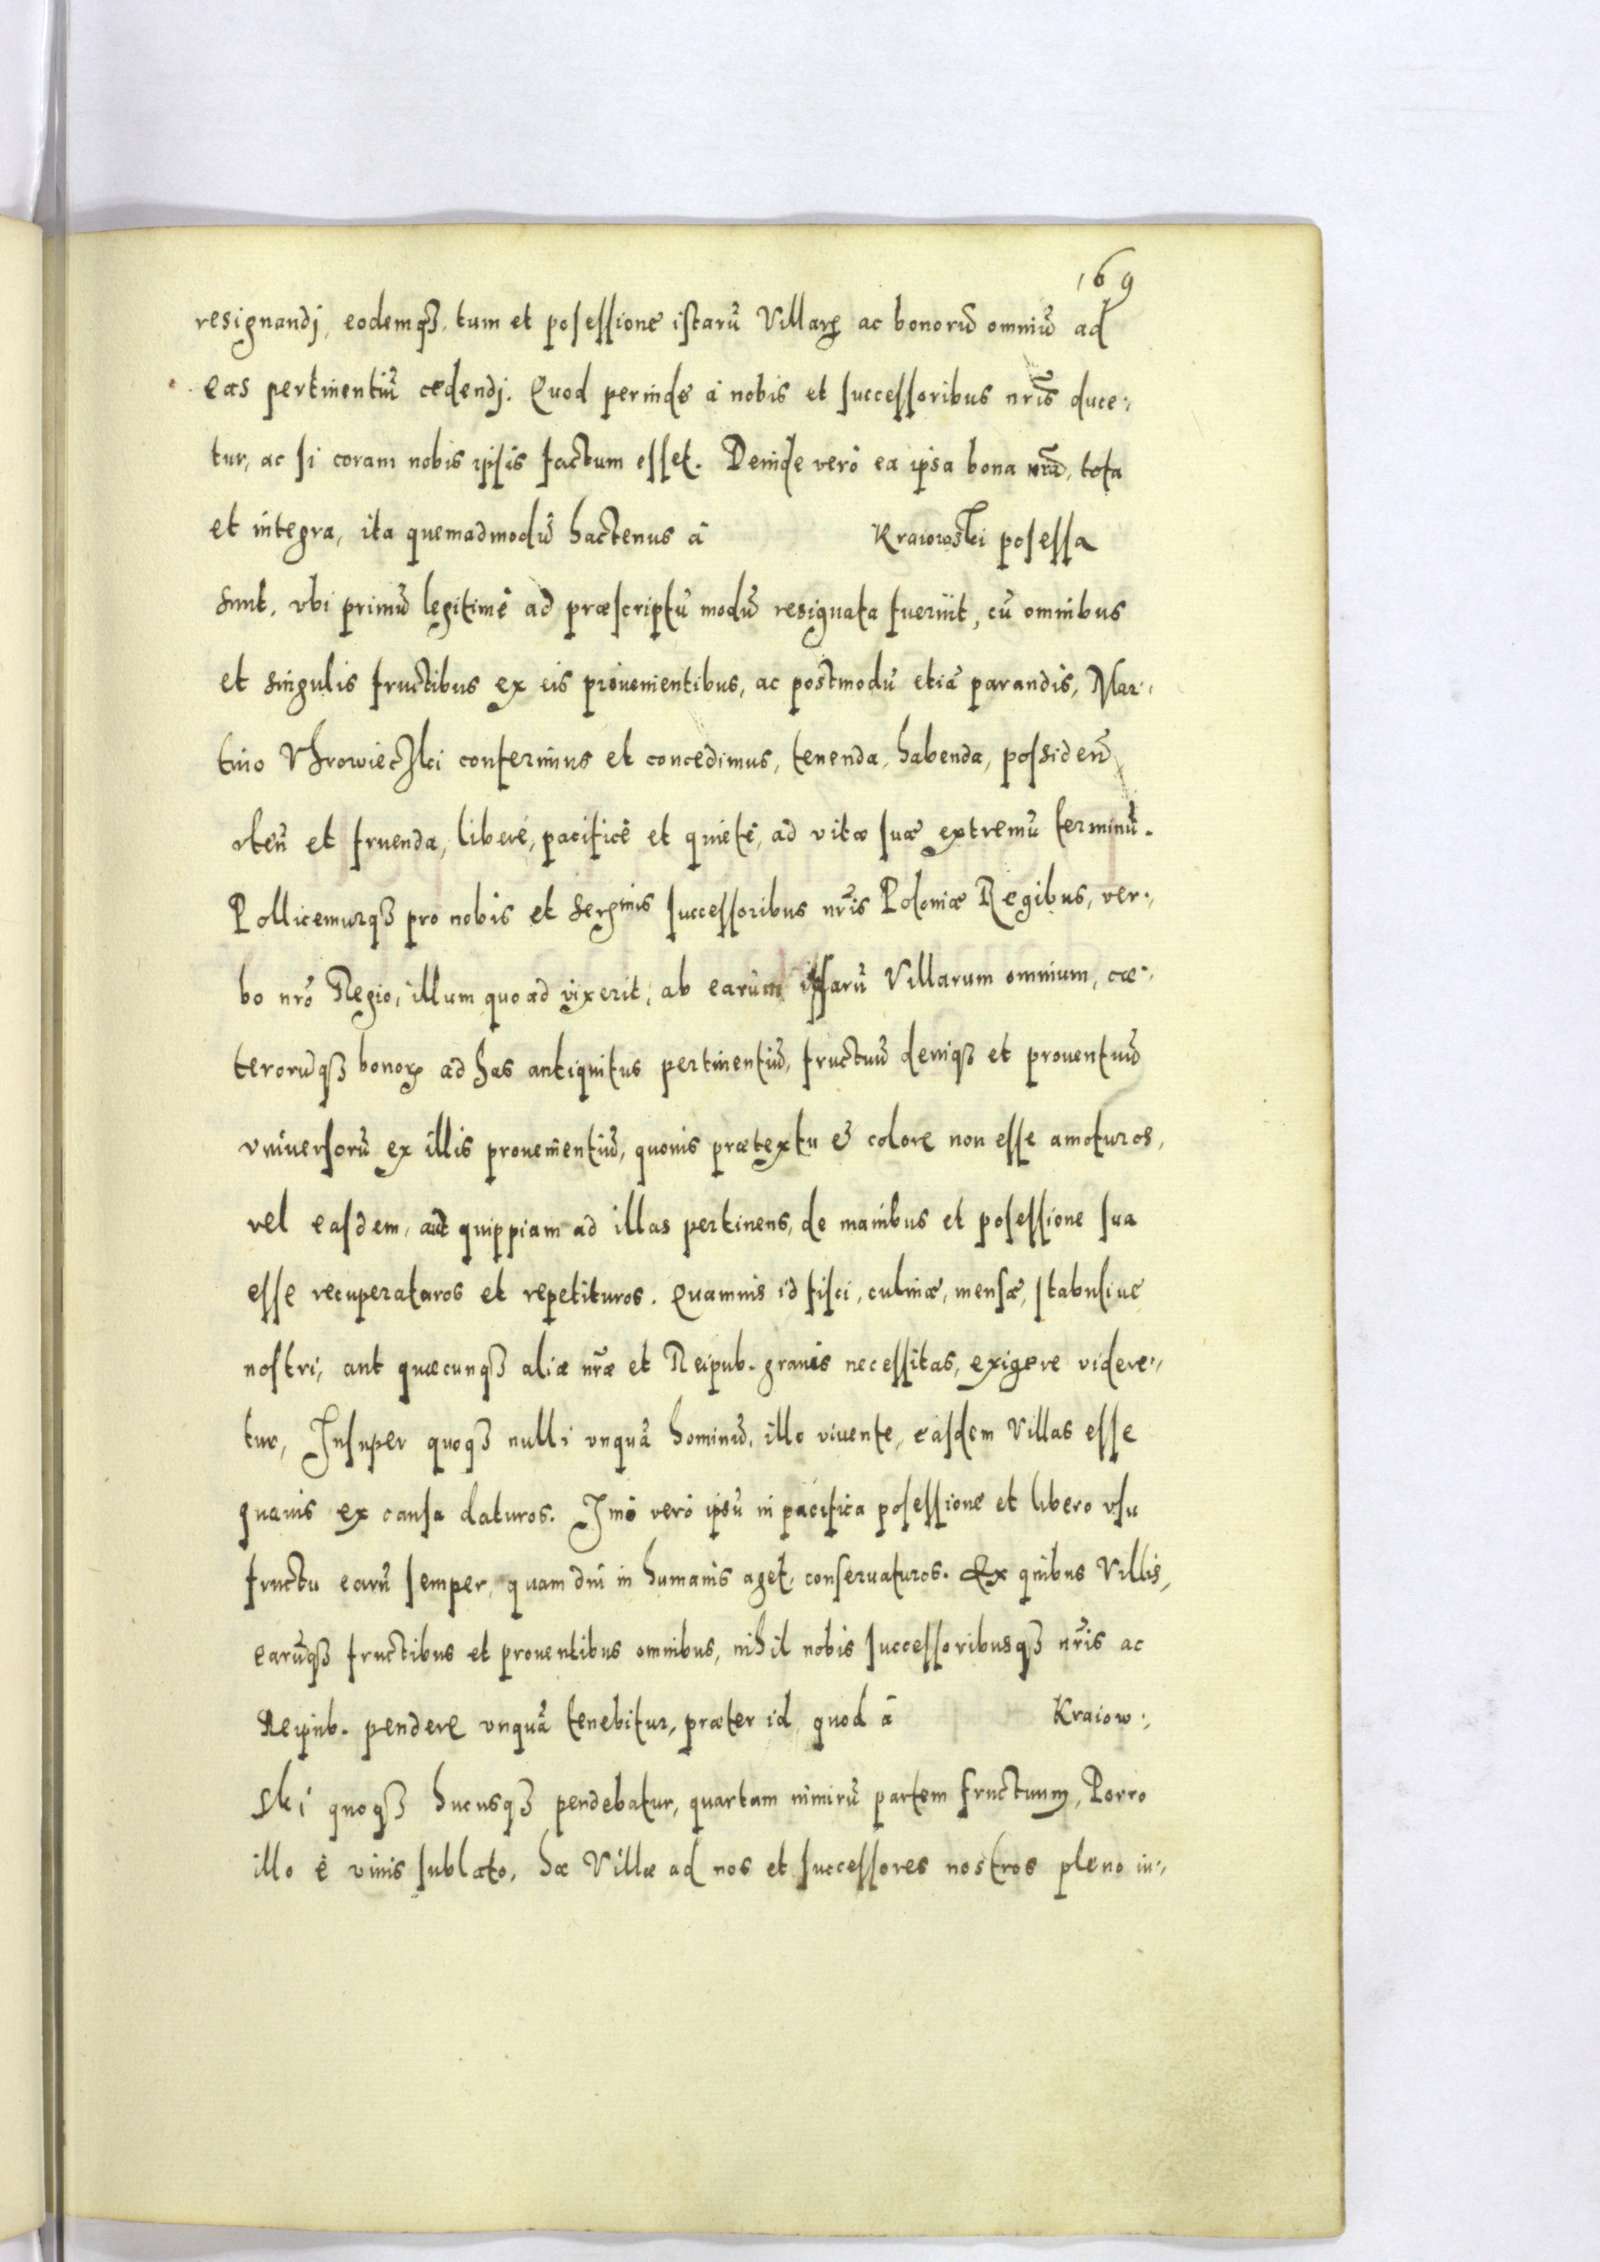 169
resignandj, eodemqȝ tum et posessionē istarū Villarꝝ ac bonorū omniū ad
eas pertinentiū cedendj. Quod perinde à nobis et successoribus nrīs duce:,
tur, ac si coram nobis ipsis factum esset. Deinde verò ea ipsa bona nrā, tota
et integra, ita quemadmodū hactenus à Kraiowski posessa
sunt, vbi primū legitimè ad præscriptū modū resignata fuerīt, cū omnibus
et singulis fructibus ex eis prouenientibus, ac postmodū etiā parandis, Mar:,
tino Vhrowieczki conferimus et concedimus, tenenda, habenda, possideñ,
vteñ et fruenda, liberè, pacificè et quietè, ad vitæ suæ extremū terminū.
Pollicemurqȝ pro nobis et Serenmis successoribus nrīs Poloniæ Regibus, ver:,
bo nrō Regio, illum quoad vixerit, ab earum ipsarū Villarum omnium, cæ:,
terorūqȝ bonorꝝ ad has antiquitus pertinentiū, fructuū deniqȝ et prouentuū
vniuersorū ex illis prouenientiū, quouis prætextu et colore non esse amoturos,
vel easdem, aut quippiam ad illas pertinens, de manibus et posessione sua
esse recuperaturos et repetituros. Quamuis id fisci, culinæ, mensæ, stabuliue
nostri, aut quæcunqȝ aliæ nrǣ et Reipub. grauis necessitas, exigere videre:,
tur, Insuper quoqȝ nulli vnquā hominū, illo viuente, easdem Villas esse
quauis ex causa daturos. Imò verò ipsū in pacifica posessione et libero vsu
fructu earū semper, quam diu in humanis aget, conseruaturos. Ex quibus Villis,
earūqȝ fructibus et prouentibus omnibus, nihil nobis successoribusqȝ nrīs ac
Reipub. pendere vnquā tenebitur, præter id quod à Kraiow:,
ski quoqȝ hucusqȝ pendebatur, quartam nimirū partem fructuum, Porro
illo è viuis sublato, hæ Villæ ad nos et successores nostros pleno iu:,